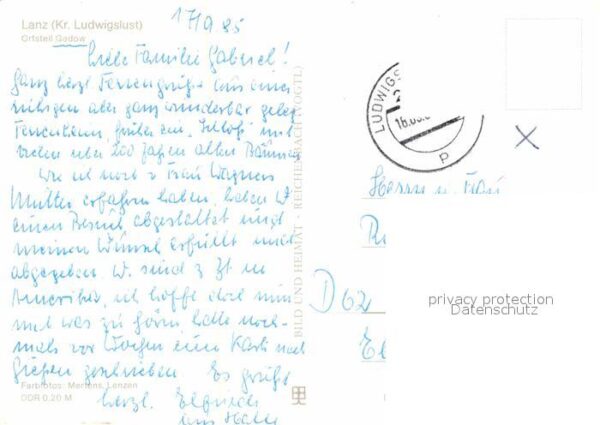 Lanz (Kr. Ludwigslust)
Ortsteil Gadow
17/9 85
Liebe Familie Gabriel!
Ganz herzl. Feriengrüße aus einem
ruhigen aber ganz wunderbar geleg
Ferienheim, früher ein "Schloß" mit
vielen über 200 Jahren alten Bäumen
Wie ich noch v Frau Wagners
Mutter erfahren haben, haben
einen Besuch abgestattet und
meinen Wunsch erfüllt und
abgegeben. W. sind z Zt in
Amerika, ich hoffe doch nun
mal was zu hören hatte noch-
mals vor Wochen eine Karte nach
Gießen geschrieben. Es grüßt
herzl.
aus Halle
Farbfotos: Mertens, Lenzen
DDR 0,20 M
BILD UND HEIMAT · REICHENBACH (VOGTL)
LUDWIGS
16.09.
P
X
Herrn u. Frau
D 62
El
privacy protection
Datenschutz